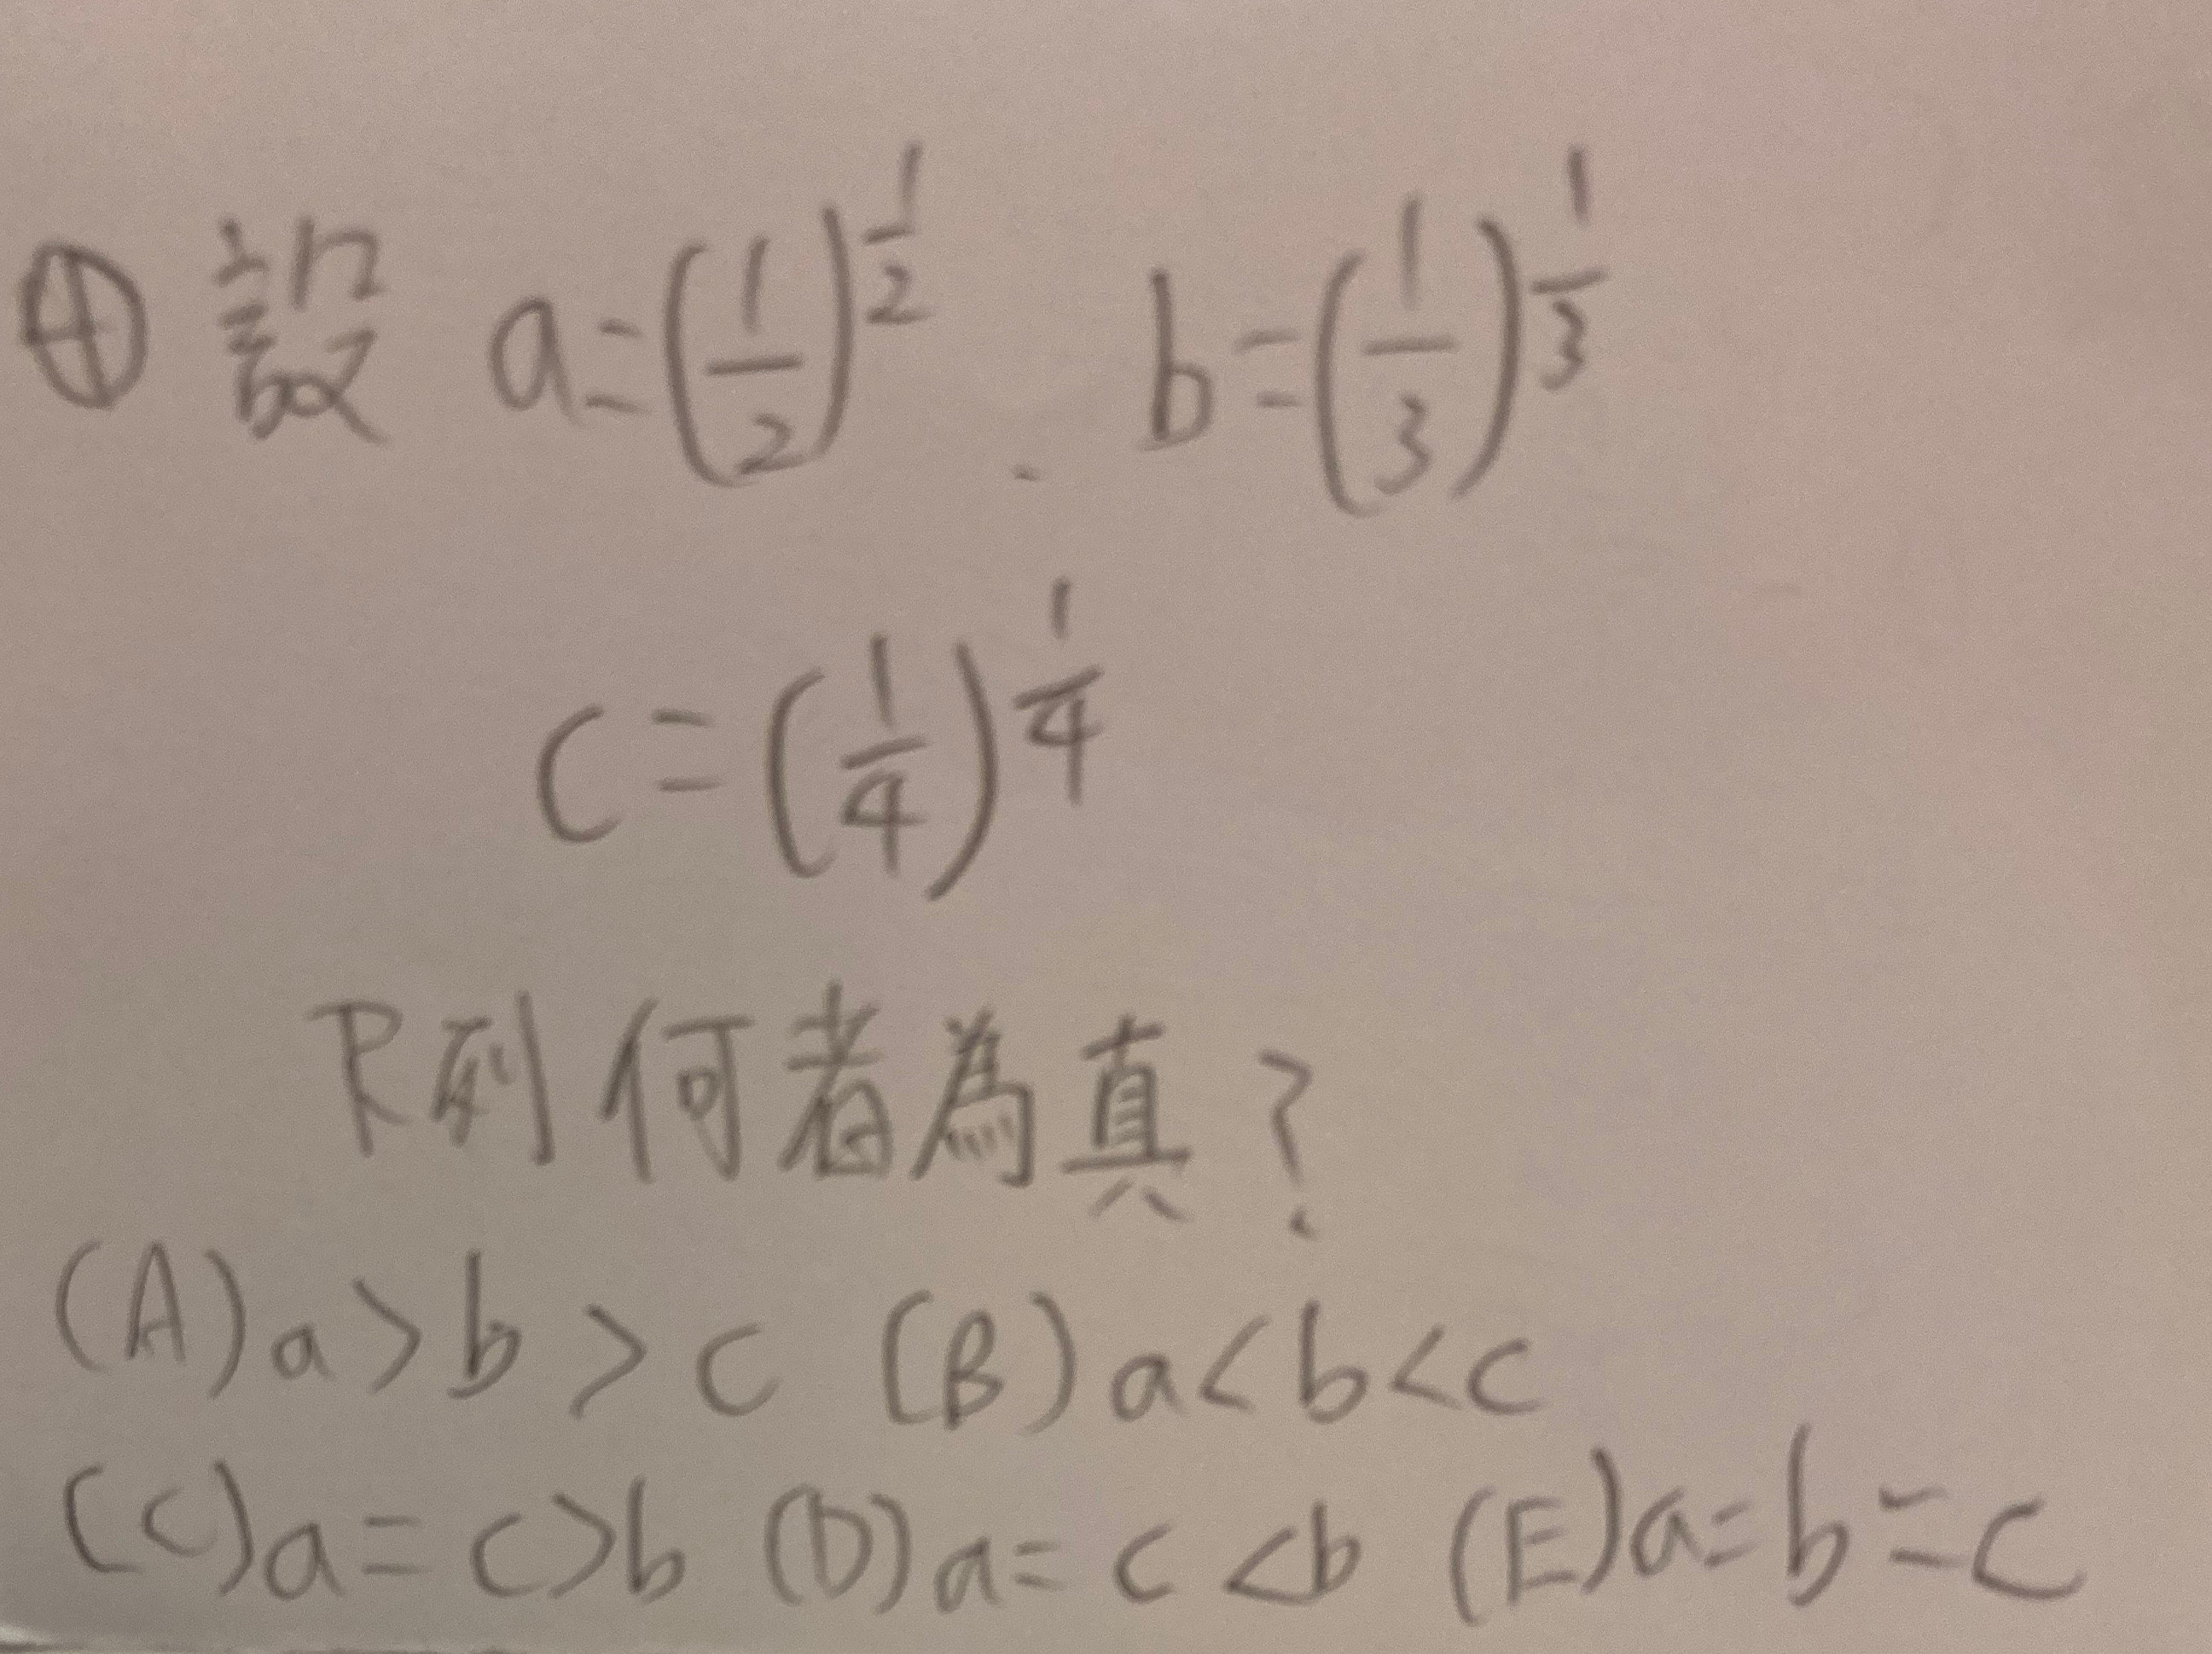 ④ 設 a=(1/2)^(1/2)、b=(1/3)^(1/3)
c=(1/4)^(1/4)
下列何者為真?
(A) a>b>c (B) a<b<c
(C) a=c>b (D) a=c<b (E) a=b=c